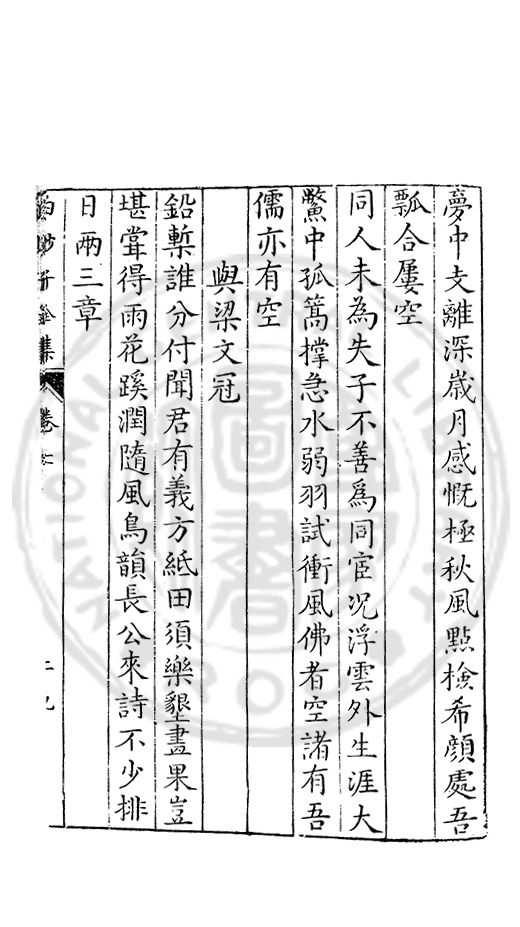 夢中支離深歲月感慨極秋風點檢希顔處吾
瓢合屢空
同人未為失子不善爲同宦况浮雲外生涯大
鱉中孤篙撑急水弱羽試衝風佛者空諸有吾
儒亦有空
與梁文冠
鉛槧誰分付聞君有義方紙田須樂墾畫果豈
堪甞得雨花蹊潤隨風鳥韻長公來詩不少排
日兩三章
全集
卷
圖書
NATIONAL